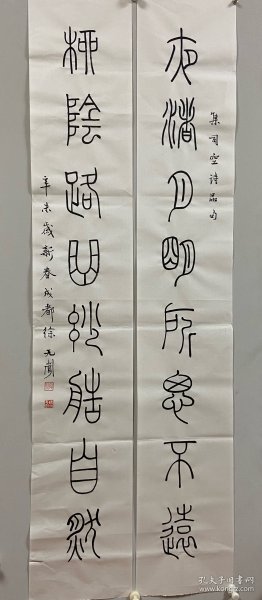 夜渚月明所思不遠
集司空詩品句
柳陰路曲妙造自然
辛未歲新春成都徐无聞
孔夫子旧书网
www.kongfz.com